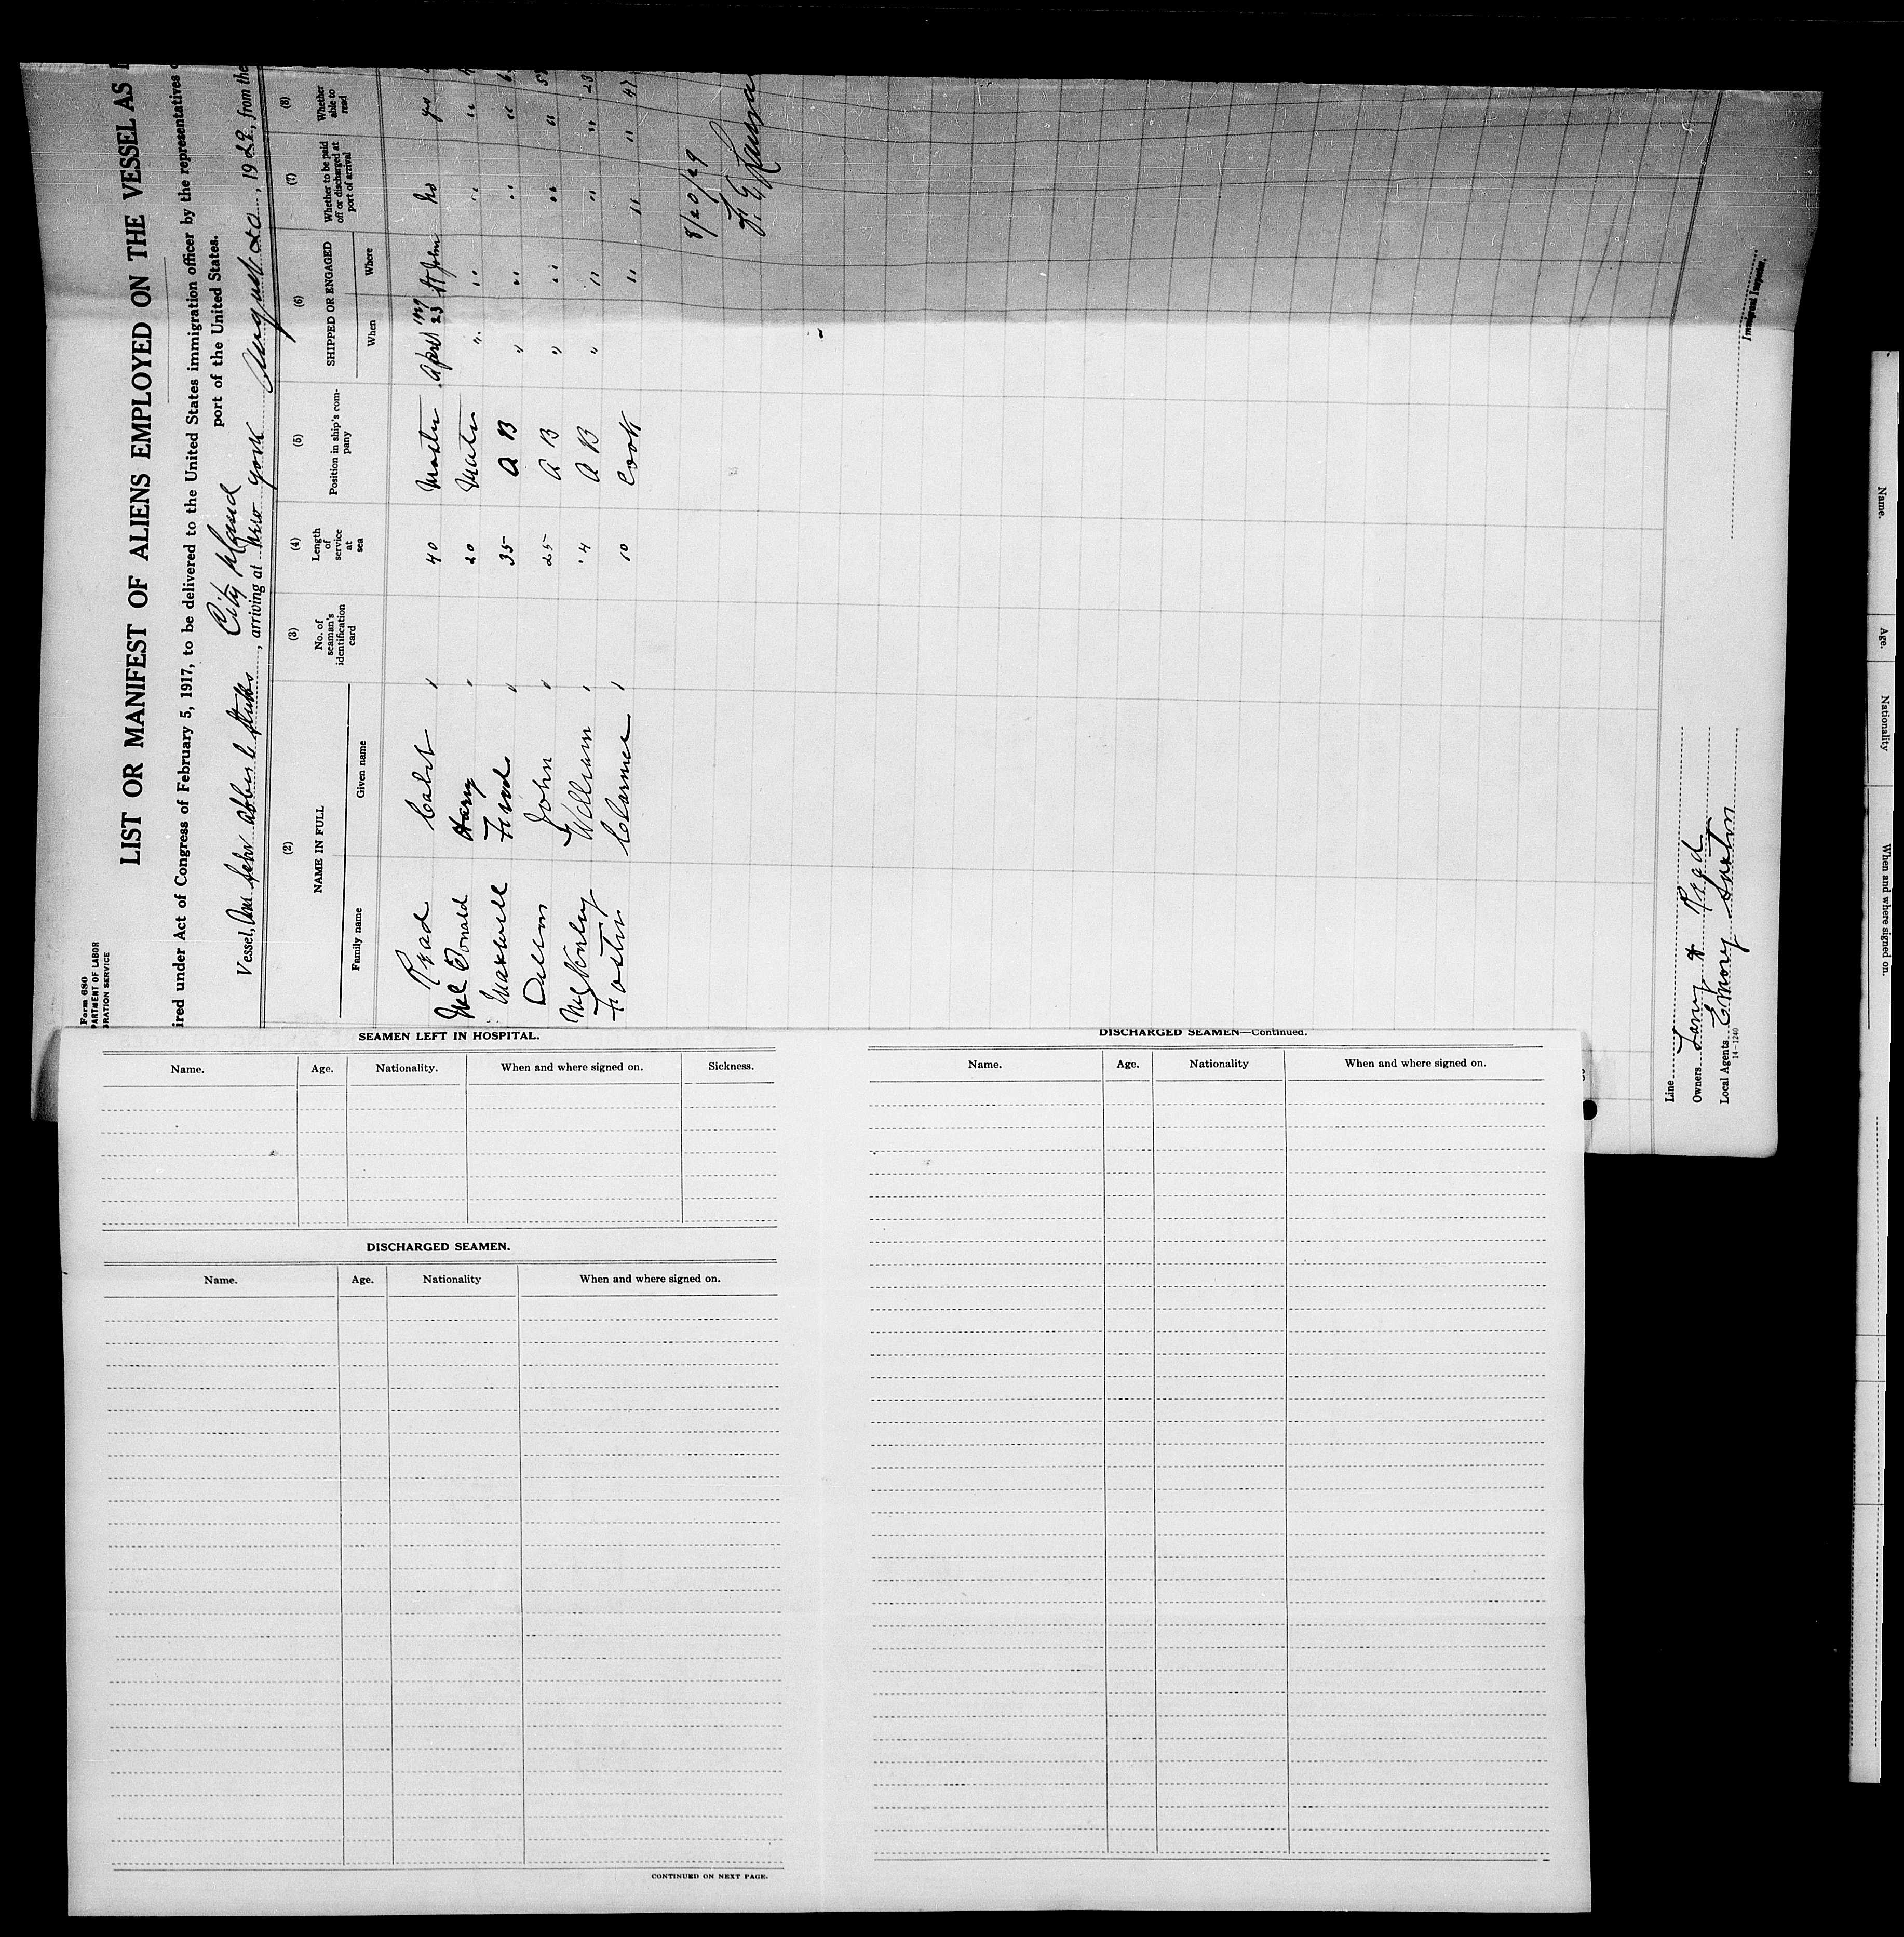 Form 680
PARTMENT OF LABOR
GRATION SERVICE
LIST OR MANIFEST OF ALIENS EMPLOYED ON THE VESSEL AS
ired under Act of Congress of February 5, 1917, to be delivered to the United States immigration officer by the representatives
port of the United States.
City Island
Vessel, Am Schr Abbie C Stubbs, arriving at New York August 20, 1929, from the
(2) (3) (4) (5) (6) (7) (8)
NAME IN FULL
Family name Given name
No. of seaman's identification card
Length of service at sea
Position in ship's company
SHIPPED OR ENGAGED
When Where
Whether to be paid off or discharged at port of arrival
Whether able to read
Read 40 Master April 23 1929 St John No yes
McDonald Harry 20 Mate " " " "
Maxwell Fred 35 A B " " " "
Dillon John 25 A B " " " "
McKinley William 4 A B " " " " 23
Foster Clarence 10 Cook " " " 47
8/20/29
Immigrant Inspector.
Line
Owners Read
Local Agents Emory Sexton
14-1240
SEAMEN LEFT IN HOSPITAL.
Name. Age. Nationality. When and where signed on. Sickness.
DISCHARGED SEAMEN.
Name. Age. Nationality When and where signed on.
CONTINUED ON NEXT PAGE.
DISCHARGED SEAMEN—Continued.
Name. Age. Nationality When and where signed on.
Name. Age. Nationality When and where signed on.